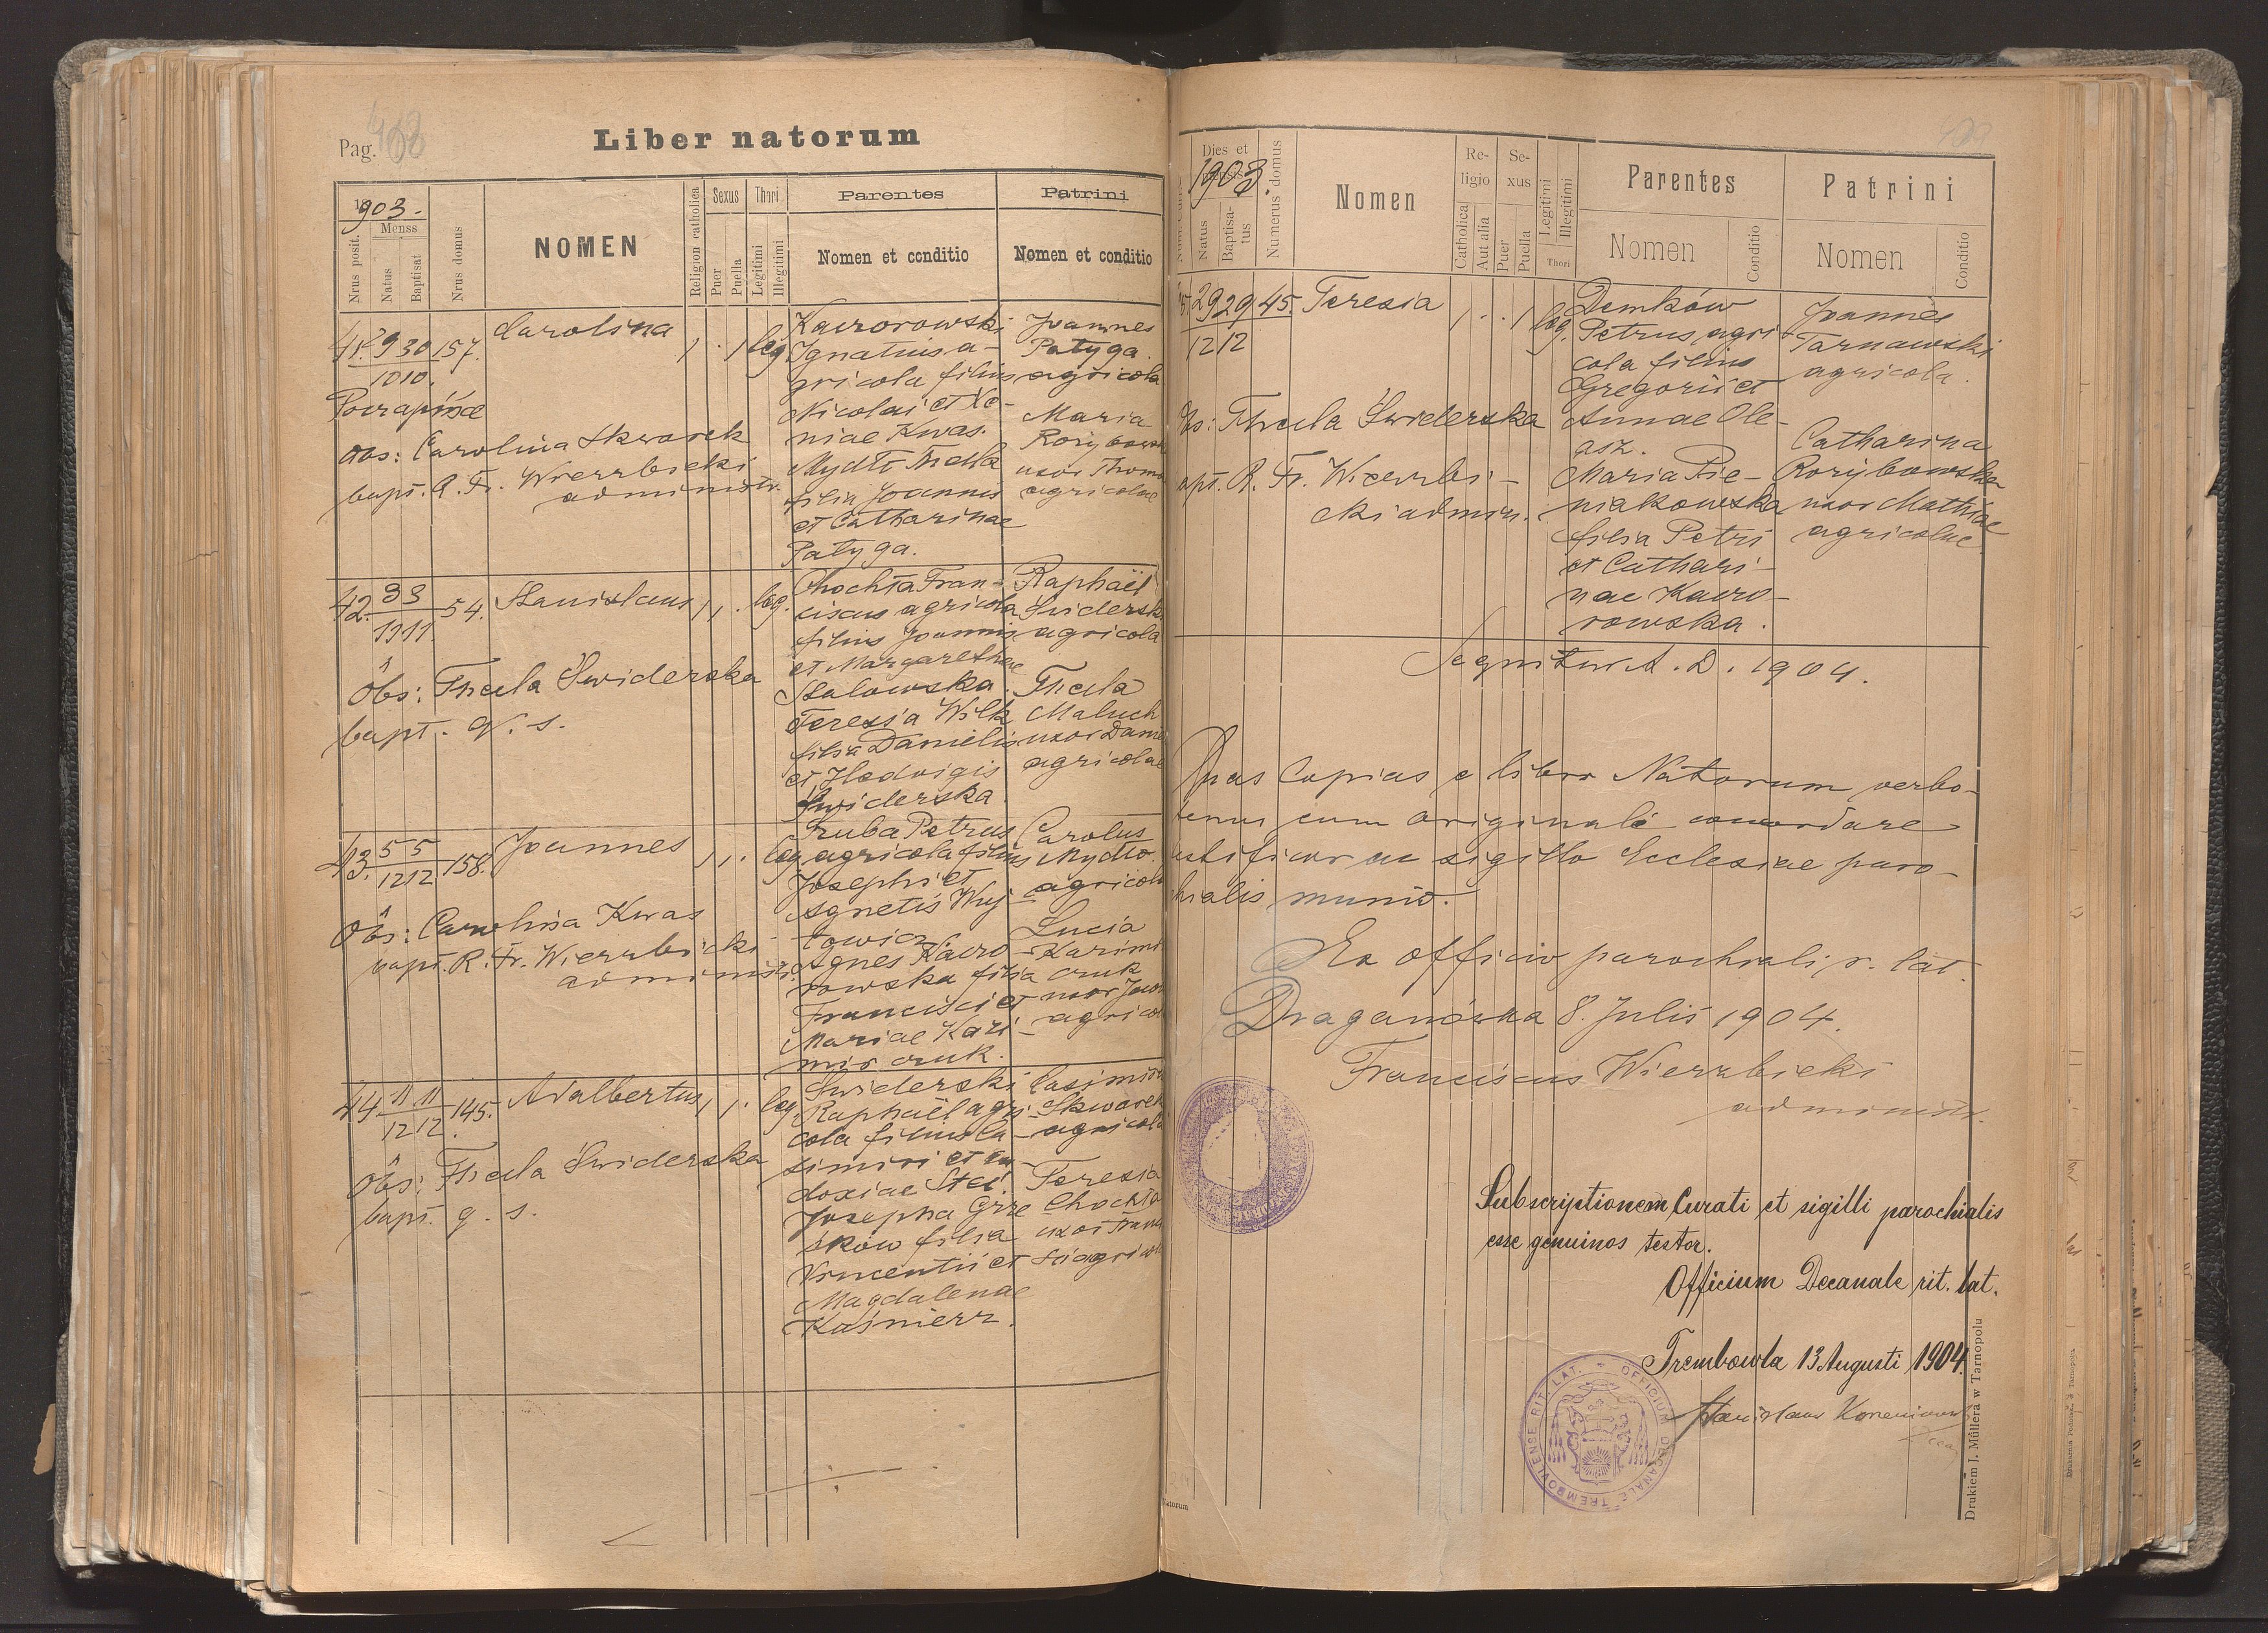 Pag. 108
Liber natorum
1903.
Nrus posit.
Menss
Natus
Baptisat
Nrus domus
NOMEN
Religion catholica
Sexus
Puer
Puella
Thori
Legitimi
Illegitimi
Parentes
Nomen et conditio
Patrini
Nomen et conditio
41. 29 30 157. Carolina 1 . 1 leg
10 10.
Poczapińce
Obs: Carolina Skwarek
bapt. R. Fr. Wierzbicki
administr.
Kaczorowski
Ignatius a-
gricola filius
Nicolai et Xe-
niae Kwas.
Mydło Thecla
filia Joannis
et Catharinae
Patyga.
Joannes
Patyga.
agricola
Maria
Rozybowska
uxor Thomae
agricolae
42. 3 3 54. Stanislaus 1 1 . leg.
11 11
Obs: Thecla Swiderska
bapt. q. s.
Chochta Fran-
ciscus agricola
filius Joannis
et Margarethae
Stalowska.
Teresia Wilk
filia Danielis
et Hedvigis
Swiderska
Raphaël
Swidersk
agricola
Thecla
Maluch
uxor Danie
agricolae
43. 5 5 158. Joannes 1 1 . leg
12 12
Obs: Carolina Kwas
bapt. R. Fr. Wierzbicki
administr.
Hruba Petrus
agricola filius
Josephi et
Agnetis Wuj-
towicz
Agnes Kaczo-
rowska filia
Francisci et
Mariae Kazi-
mirczuk.
Carolus
Mydło.
agricola
Lucia
Kazimi-
rczuk
uxor Jaco
agricol
44. 11 11 145. Adalbertus 1 1 . leg.
12 12
Obs: Thecla Swiderska
bapt. q. s.
Swiderski
Raphaël agri-
cola filius Ca-
simiri et Eu-
doxiae Stec
Josepha Grze-
śków filia
Vincentii et
Magdalenae
Kaśnierz.
Casimirus
Skwarek
agricola
Teresia
Chochta
uxor Franci
sci agricol
Dies et
1903.
Natus
Baptisa-
tus
Numerus domus
Nomen
Re-
ligio
Catholica
Aut alia
Se-
xus
Puer
Puella
Legitimi
Illegitimi
Thori
Parentes
Nomen
Conditio
Patrini
Nomen
Conditio
45 29 29 45. Teresia 1 . . 1 leg.
12 12
Obs: Thecla Swiderska
bapt. R. Fr. Wierzbi-
cki admin.
Demków
Petrus, agri-
cola filius
Gregorii et
Annae Ole-
asz.
Maria Pie-
niakowska
filia Petri
et Cathari-
nae Kaczo-
rowska.
Joannes
Tarnawski
agricola.
Catharina
Rozybowska
uxor Mathiae
agricolae
Sequitur A. D. 1904.
Has Copias e libro Natorum verbo-
tenus cum originali concordare
testificor ac sigillo Ecclesiae paro-
chialis munio.
Ex Officio parochiali r. lat.
Draganówka 8. Julii 1904.
Franciscus Wierzbicki
administr.
Subscriptionem Curati et sigilli parochialis
esse genuinos testor.
Officium Decanale rit. lat.
Trembowla 13 Augusti 1904.
OFFICIUM DECANALE TREMBOVLENSE RIT. LAT.
Drukiem J. Müllera w Tarnopolu
Natorum